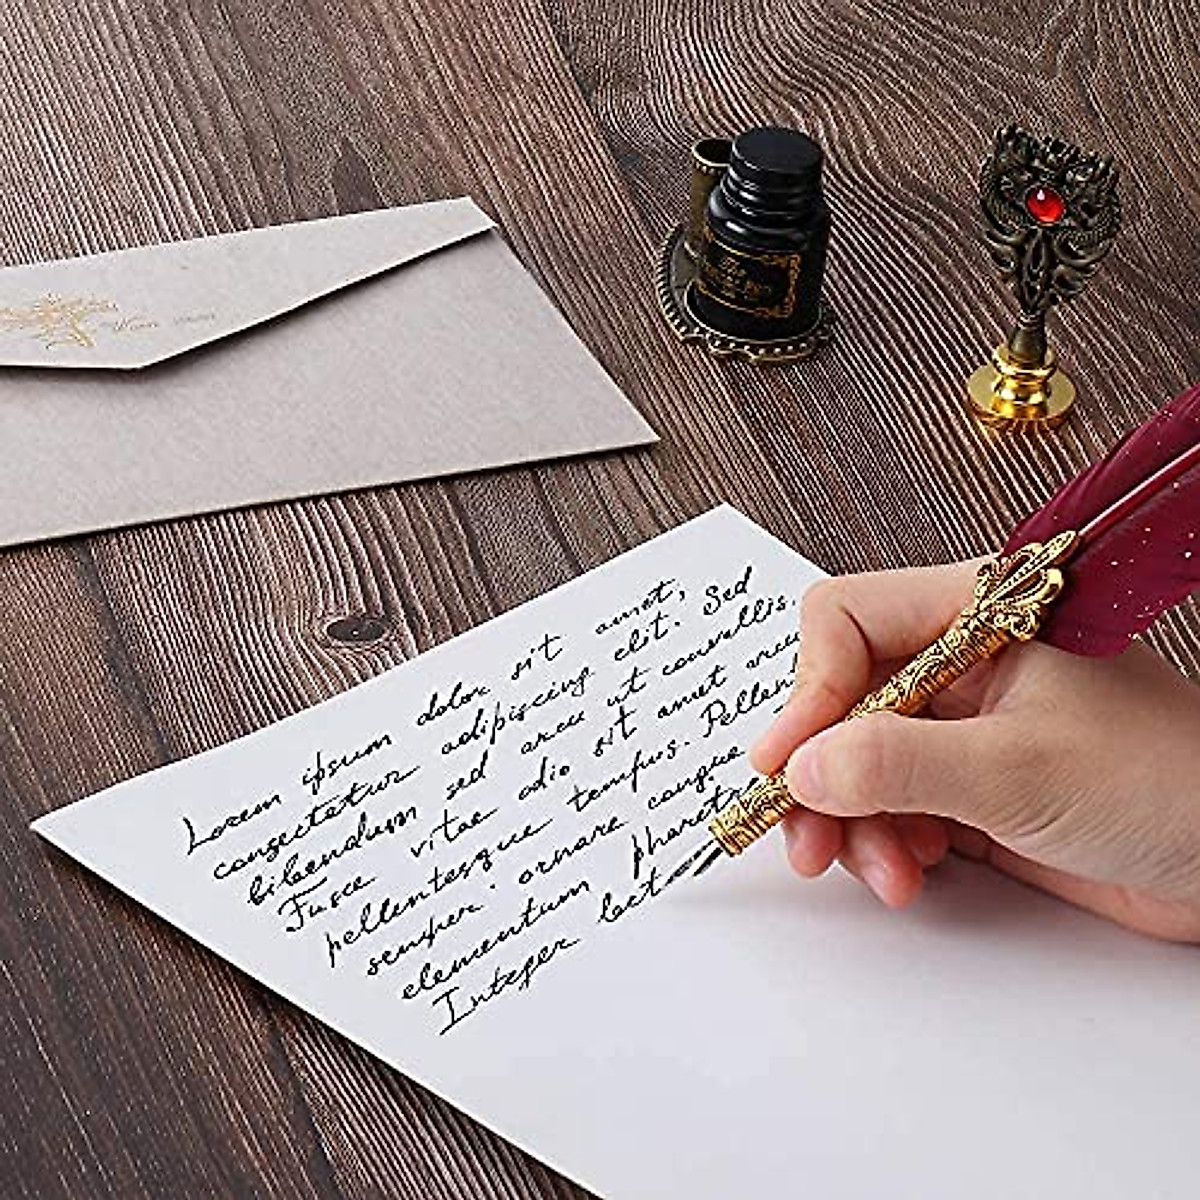 Lorem ipsum dolor sit amet,
consectetur adipiscing elit. Sed
bibendum sed arcu ut convallis.
Fusce vitae odio sit amet arcu
pellentesque tempus. Pellent
semper ornare congue
elementum pharetr
Integer lect
The